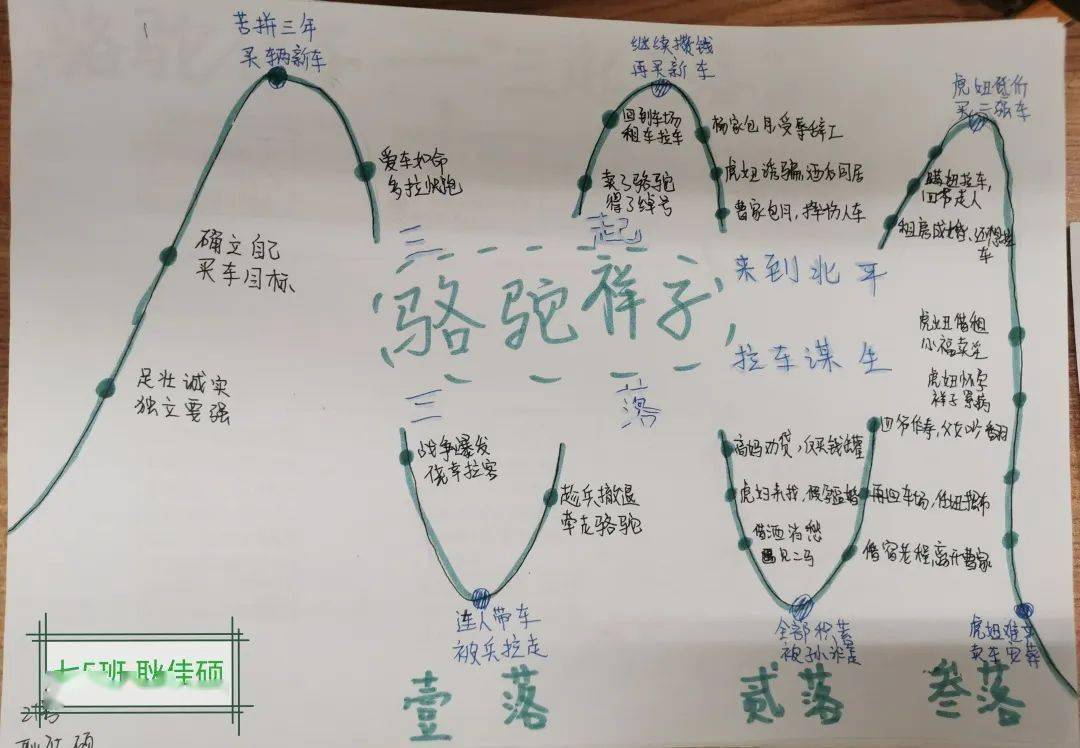 苦拼三年
买辆新车
爱车如命
多拉快跑
确立自己
买车目标
足壮诚实
独立要强
继续攒钱
再买新车
回到车场
租车拉车
卖了骆驼
得了绰号
杨家包月受辱辞工
虎妞诱骗,酒后同居
曹家包月,摔伤人车
虎妞低价
买二强车
瞒妞拉车,
四爷走人
租房成婚,还想拉
车
三起
骆驼祥子
三落
来到北平
拉车谋生
战争爆发
侥幸拉客
趁兵撤退
牵走骆驼
连人带车
被兵拉走
壹落
高妈劝贷,仅买钱罐
虎妞来找,假孕逼婚
借酒消愁
遇见二马
四爷作寿,父女吵翻
再回车场,任妞摆布
借宿老程离开曹家
全部积蓄
被孙诈走
贰落
虎妞借租
小福卖笑
虎妞怀孕
祥子累病
虎妞难产
卖车安葬
叁落
七5班 耿佳硕